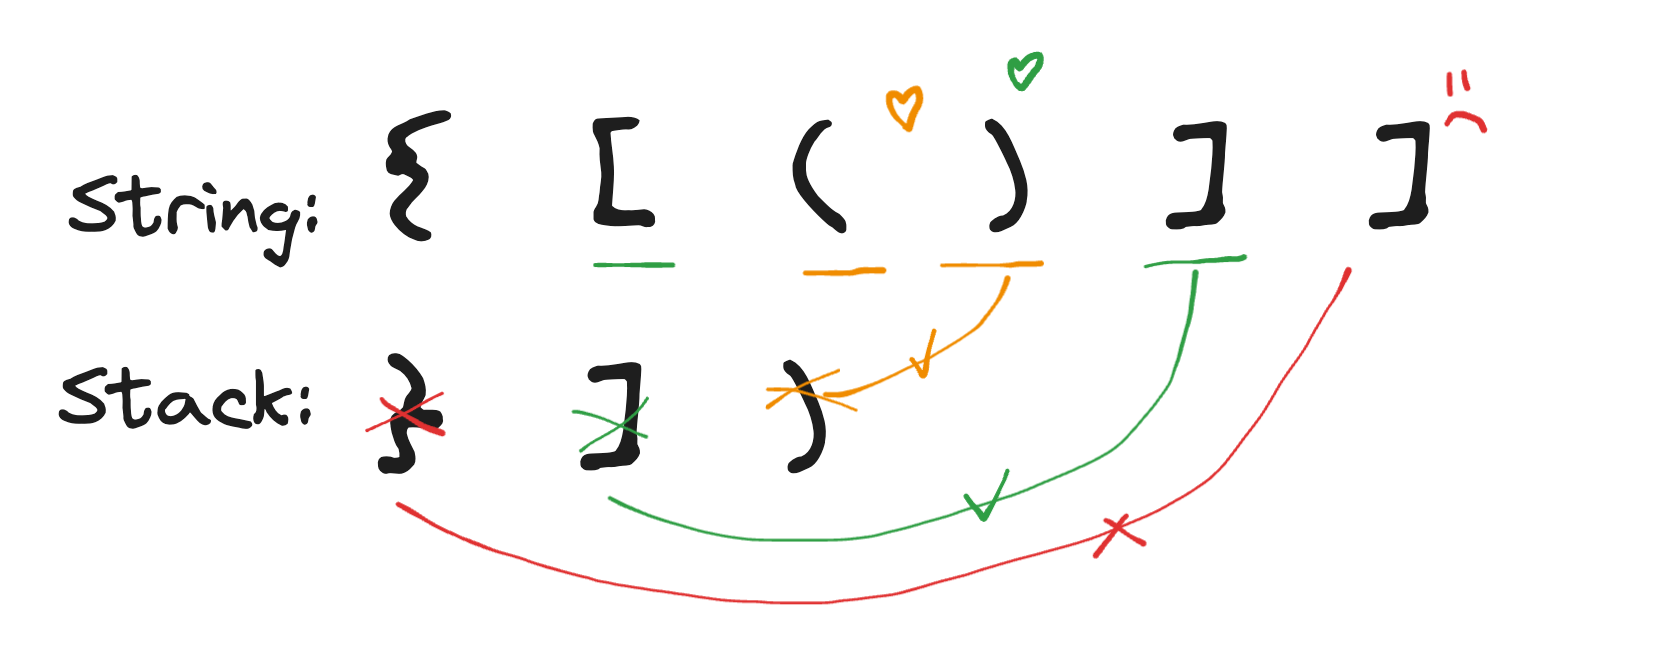 String: { [ ( ) ] ]
Stack: } ] )